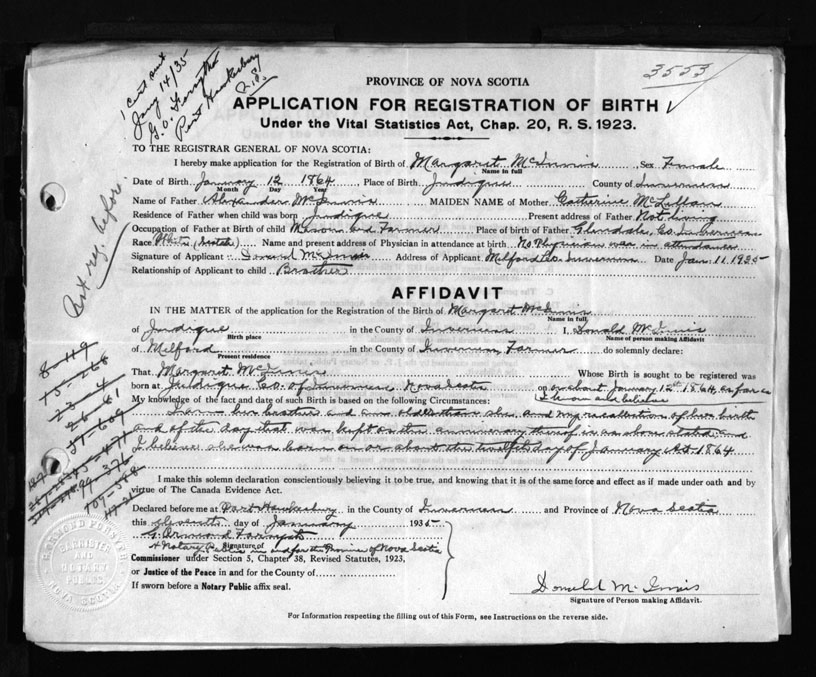 1 cent sent
Jany 14/35
G. O. Forsythe
Port Hawkesbury
3553
PROVINCE OF NOVA SCOTIA
APPLICATION FOR REGISTRATION OF BIRTH
Under the Vital Statistics Act, Chap. 20, R. S. 1923.
TO THE REGISTRAR GENERAL OF NOVA SCOTIA:
I hereby make application for the Registration of Birth of Margaret McInnis Sex Female
Name in full
Date of Birth January 12 1864 Place of Birth Judique County of Inverness
Month Day Year
Name of Father Alexander McInnis MAIDEN NAME of Mother Catherine McLellan
Residence of Father when child was born Judique Present address of Father Not living
Occupation of Father at Birth of child Mason and Farmer Place of birth of Father Glendale, Co. Inverness
Race White (Scotch) Name and present address of Physician in attendance at birth No Physician was in attendance
Signature of Applicant Donald McInnis Address of Applicant Milford Co. Inverness Date Jan. 11 1935
Relationship of Applicant to child Brother
not reg. before.
AFFIDAVIT
IN THE MATTER of the application for the Registration of the Birth of Margaret McInnis
Name in full
of Judique in the County of Inverness I, Donald McInnis
Birth place Name of person making Affidavit
of Milford in the County of Inverness Farmer do solemnly declare:
Present residence
That Margaret McInnis Whose Birth is sought to be registered was
born at Judique Co. of Inverness Nova Scotia on or about January 12th 1864, as far as
I know and believe
My knowledge of the fact and date of such Birth is based on the following Circumstances:
I am her brother and am older than she and my recollection of her birth
and of the day that was kept as the anniversary thereof is as above stated and
I believe she was born on or about the twelfth day of January AD. 1864
8-119
15-268
23-4
26-61
37-609
I make this solemn declaration conscientiously believing it to be true, and knowing that it is of the same force and effect as if made under oath and by
virtue of The Canada Evidence Act.
Declared before me at Port Hawkesbury in the County of Inverness and Province of Nova Scotia
this eleventh day of January 1935
Signature of
A Notary Public in and for the Province of Nova Scotia
Commissioner under Section 5, Chapter 38, Revised Statutes, 1923,
or Justice of the Peace in and for the County of
If sworn before a Notary Public affix seal.
BARRISTER
AND
NOTARY
PUBLIC
NOVA SCOTIA
Donald McInnis
Signature of Person making Affidavit.
For Information respecting the filling out of this Form, see Instructions on the reverse side.